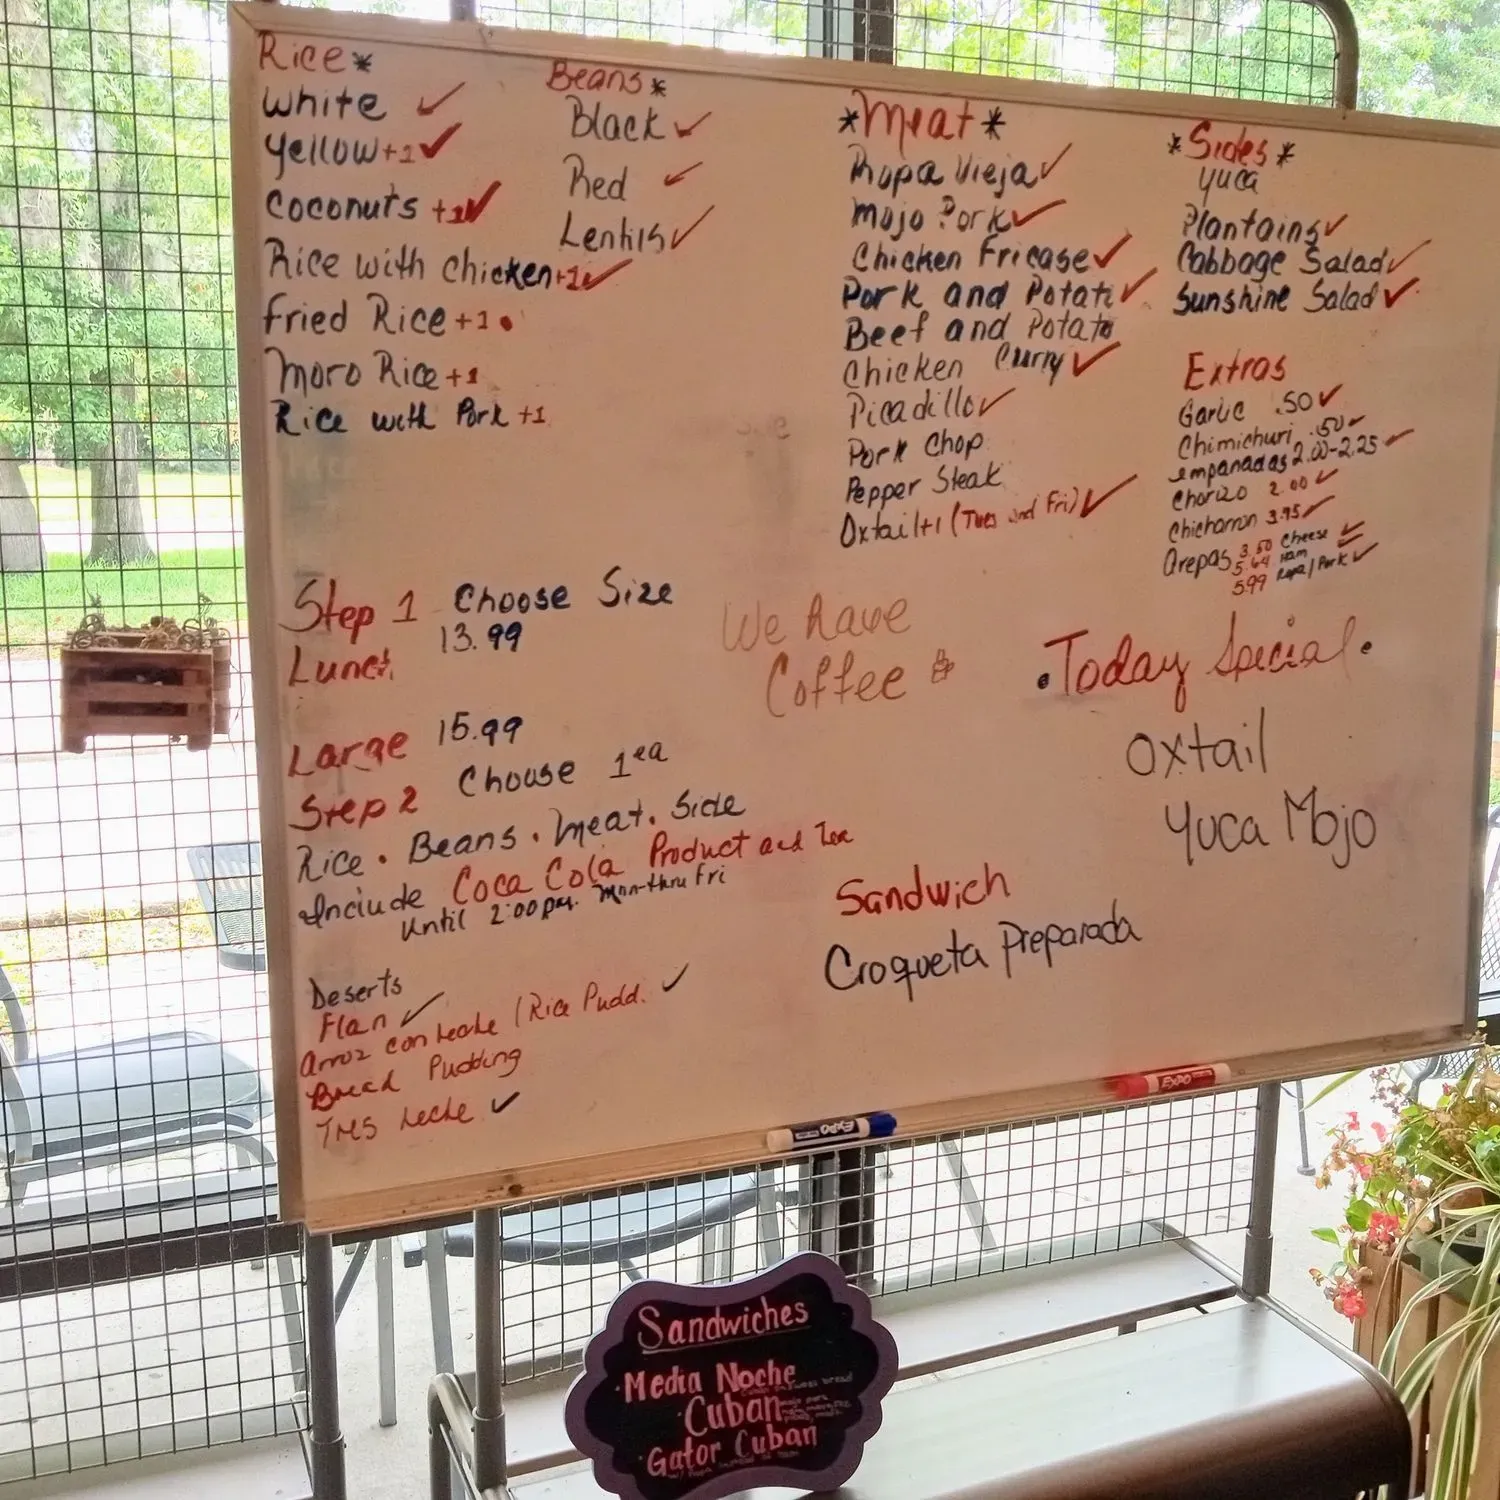 Rice*
White ✓
Yellow +1 ✓
Coconuts +1 ✓
Rice with chicken +1 ✓
Fried Rice +1
Moro Rice +1
Rice with Pork +1
Beans*
Black ✓
Red ✓
Lentils ✓
*Meat*
Ropa Vieja ✓
Mojo Pork ✓
Chicken Fricase ✓
Pork and Potato ✓
Beef and Potato
Chicken Curry ✓
Picadillo ✓
Pork Chop
Pepper Steak
Oxtail +1 (Tues and Fri) ✓
*Sides*
Yuca
Plantains ✓
Cabbage Salad ✓
Sunshine Salad ✓
Extras
Garlic .50 ✓
Chimichuri .50 ✓
empanadas 2.00-2.25 ✓
Chorizo 2.00 ✓
Chicharron 3.95 ✓
Arepas 3.50 Cheese ✓
5.64 Ham ✓
5.99 Ropa/Pork ✓
Step 1 Choose Size
Lunch 13.99
Large 15.99
Step 2 Choose 1 ea
Rice . Beans . Meat . Side
Include Coca Cola Product and Tea
Until 2:00 pm. Mon-thru Fri
We have
Coffee
.Today Special.
Oxtail
Yuca Mojo
Sandwich
Croqueta Preparada
Deserts
Flan ✓
Arroz con Leche / Rice Pudd. ✓
Bread Pudding
Tres Leche ✓
EXPO
EXPO
Sandwiches
Media Noche
Cuban
Gator Cuban